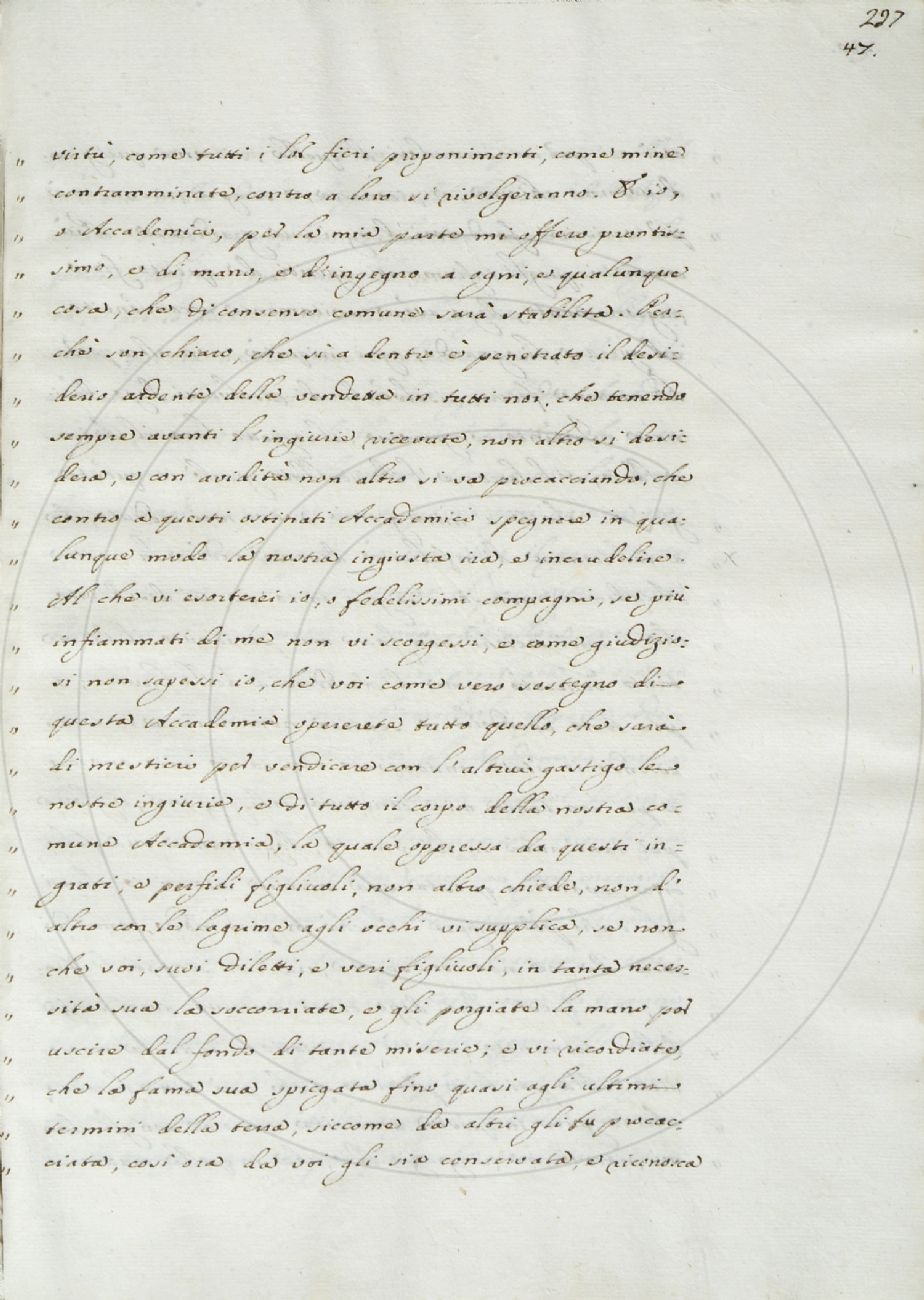 297
47.
„ virtù, come tutti i lor fieri proponimenti, come mine
„ contramminate, contro a loro si rivolgeranno. E io,
„ o Accademici, per la mia parte mi offero prontis-
„ simo, e di mano, e d'ingegno a ogni, e qualunque
„ cosa, che di consenso comune sarà stabilita. Per-
„ chè son chiaro, che sì a dentro è penetrato il desi-
„ derio ardente della vendetta in tutti noi, che tenendo
„ sempre avanti l'ingiurie ricevute, non altro si desi-
„ dera, e con avidità non altro si va procacciando, che
„ contro a questi ostinati Accademici spegnere in qua-
„ lunque modo la nostra ingiusta ira, e incrudelire.
„ Al che vi esorterei io, o fedelissimi compagni, se più
„ infiammati di me non vi scorgessi, e come giudizio-
„ si non sapessi io, che voi come vero sostegno di
„ questa Accademia opererete tutto quello, che sarà
„ di mestiero per vendicare con l'altrui gastigo le
„ nostre ingiurie, e di tutto il corpo della nostra co-
„ mune Accademia, la quale oppressa da questi in-
„ grati, e perfidi figliuoli, non altro chiede, non d'
„ altro con le lagrime agli occhi vi supplica, se non
„ che voi, suoi diletti, e veri figliuoli, in tanta neces-
„ sità sua la soccorriate, e gli porgiate la mano per
„ uscire dal fondo di tante miserie; e vi ricordiate,
„ che la fama sua spiegata fino quasi agli ultimi
„ termini della terra, siccome da altri gli fu procac-
„ ciata, così ora da voi gli sia conservata, e riconosca